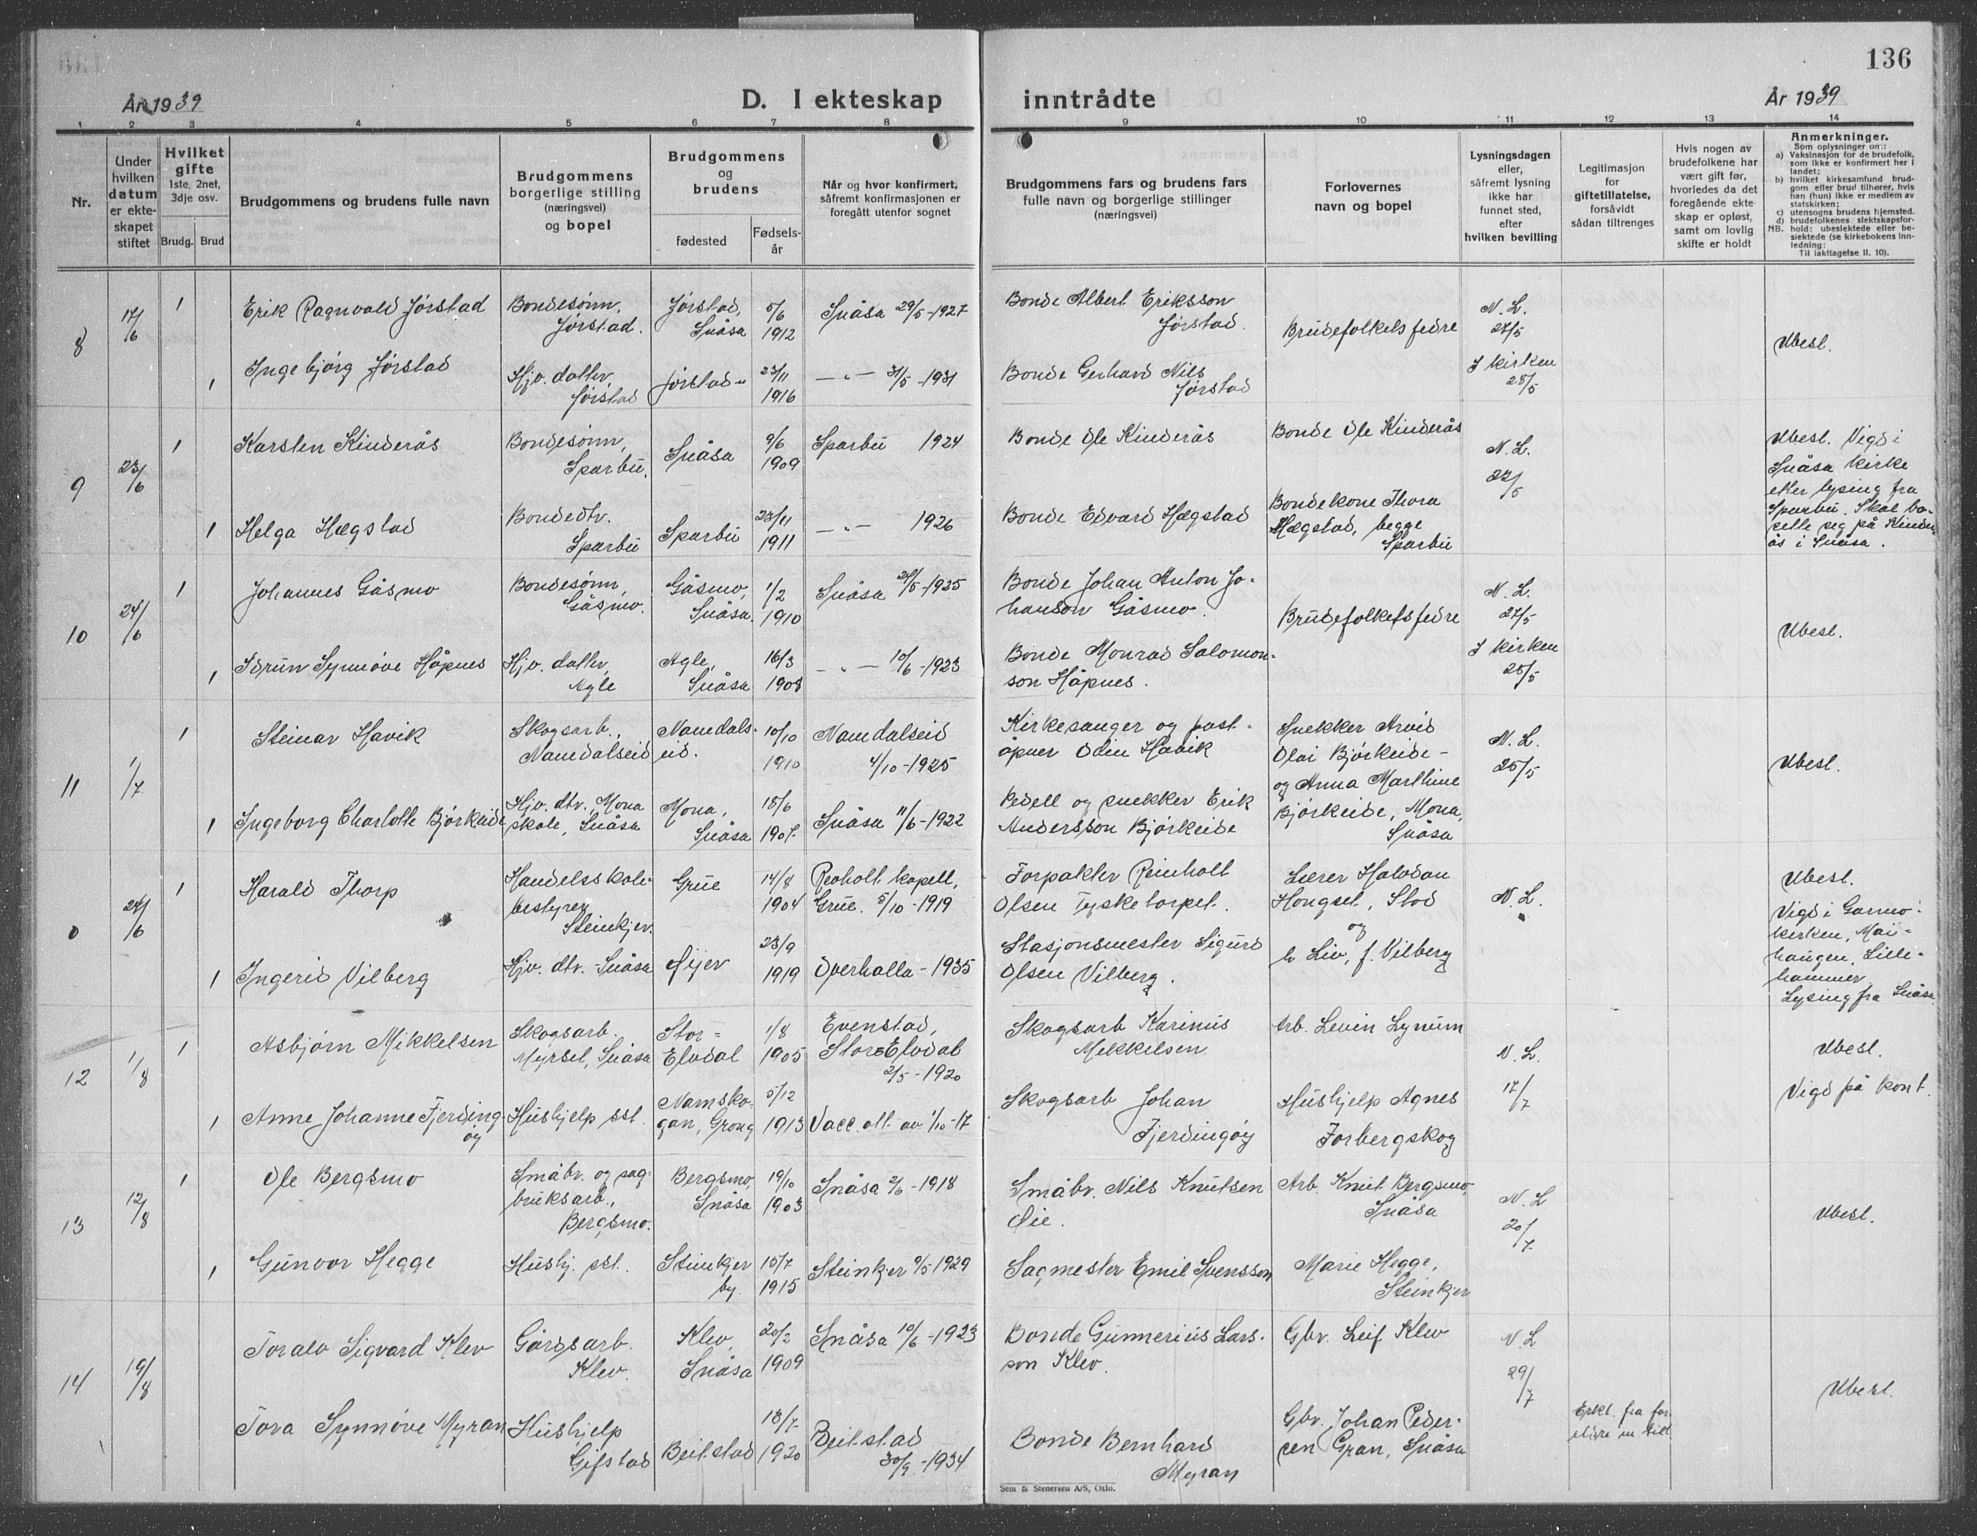 136
År 1939
D. I ekteskap
inntrådte
År 1939
1 2 3 4 5 6 7 8 9 10 11 12 13 14
Nr.
Under
hvilken
datum
er ekte-
skapet
stiftet
Hvilket
gifte
1ste, 2net,
3dje osv.
Brudg.
Brud
Brudgommens og brudens fulle navn
Brudgommens
borgerlige stilling
(næringsvei)
og bopel
Brudgommens
og
brudens
fødested
Fødsels-
år
Når og hvor konfirmert,
såfremt konfirmasjonen er
foregått utenfor sognet
Brudgommens fars og brudens fars
fulle navn og borgerlige stillinger
(næringsvei)
Forlovernes
navn og bopel
Lysningsdagen
eller,
såfremt lysning
ikke har
funnet sted,
efter
hvilken bevilling
Legitimasjon
for
giftetillatelse,
forsåvidt
sådan tiltrenges
Hvis nogen av
brudefolkene har
vært gift før,
hvorledes da det
foregående ekte-
skap er opløst,
samt om lovlig
skifte er holdt
Anmerkninger.
Som oplysning om:
a) Vaksinasjon for de brudefolk,
som ikke er konfirmert her i
landet;
b) hvilket kirkesamfund brud-
gom eller brud tilhører, hvis
han (hun) ikke er medlem av
statskirken;
c) utensogns brudens hjemsted.
d) brudefolkenes slektskapsfor-
NB. hold: ubeslektede eller be-
slektede (se kirkebokens inn-
ledning:
Til iakttagelse II. 10).
8
17/6
1
Erik Ragnvald Jørstad
Bondesønn,
Jørstad.
Jørstad,
Snåsa
5/6
1912
Snåsa 29/5-1927
Bonde Albert Eriksson
Jørstad.
Brudefolkets fedre
N. L.
27/5
I kirken
28/5
Ubesl.
1
Ingebjørg Jørstad
Hjv. datter,
Jørstad
Jørstad "
23/11
1916
— " — 31/5-1931
Bonde Gerhard Nils
Jørstad
9
23/6
1
Karsten Kinderås
Bondesønn,
Sparbu.
Snåsa
9/6
1909
Sparbu 1924
Bonde Ole Kinderås
Bonde Ole Kinderås
N. L.
27/5
Ubesl. Vigd i
Snåsa kirke
etter lysing fra
Sparbu. Skal bo-
sette seg på Kinder-
ås i Snåsa.
1
Helga Hægstad
Bondedtr.
Sparbu
Sparbu
23/11
1911
— " — 1926
Bonde Edvard Hægstad
Bondekone Thora
Hægstad, begge
Sparbu
10
24/6
1
Johannes Gåsmo
Bondesønn,
Gåsmo.
Gåsmo,
Snåsa.
1/2
1910
Snåsa 24/5-1925
Bonde Johan Anton Jo-
hanson Gåsmo.
Brudefolkets fedre
N. L.
27/5
I kirken
28/5
Ubesl.
1
Idrun Synnøve Håpnes
Hjv. datter,
Agle
Agle,
Snåsa
16/3
1908
— " — 10/6-1923
Bonde Monrad Salomon-
son Håpnes.
11
1/7
1
Steinar Havik
Skogsarb.,
Namdalseid
Namdals-
eid.
10/10
1910
Namdalseid
4/10-1925
Kirkesanger og post-
åpner Odin Havik
Snekker Arvid
Olai Bjørkeide -
og Anna Marthine
Bjørkeide, Mona,
Snåsa
N. L.
25/5
Ubesl.
1
Ingeborg Charlotte Bjørkeide
Hjv. dtr. Mona
skole, Snåsa
Mona,
Snåsa
18/6
1907.
Snåsa 11/6-1922
Pedell og snekker Erik
Andersson Bjørkeide
0
24/6
1
Harald Thorp
Handelsskole-
bestyrer,
Steinkjer.
Grue
14/8
1904
Revholt kapell,
Grue. 5/10-1919
Forpakter Reinholt
Olsen Tysketorpet.
Lærer Halvdan
Hongset, Stod
og
h. Liv, f. Vilberg
N. L.
Ubesl.
Vigd i Garmo-
kirken, Mai-
haugen, Lille-
hammer
Lysing fra Snåsa
1
Ingerid Vilberg
Hjv. dtr. - Snåsa
Øyer
23/9
1919
Overhalla - 1935
Stasjonsmester Sigurd
Olsen Vilberg.
12
1/8
1
Asbjørn Mikkelsen
Skogsarb.
Myrset, Snåsa
Stor-
Elvdal
1/8
1905
Evenstad,
Stor-Elvdal
2/5-1920
Skogsarb Karinus
Mikkelsen
Arb. Levin Lynum
N. L.
17/7
Ubesl.
Vigd på kont.
1
Anne Johanne Fjerding-
øy
Hushjelp sst.
Namsko-
gan, Grong
5/12
1913
Vacc. att. av 1/10-17
Skogsarb Johan
Fjerdingøy
Hushjelp Agnes
Forbergskog
13
12/8
1
Ole Bergsmo
Småbr. og sag-
bruksarb.,
Bergsmo.
Bergsmo,
Snåsa
19/10
1903
Snåsa 2/6-1918
Småbr. Nils Knutsen
Øie.
Arb. Knut Bergsmo,
Snåsa
N. L
20/7
Ubesl.
1
Gunvor Hegge
Hushj. sst.
Steinkjer
by.
15/7
1915
Steinkjer 9/5 1929
Sagmester Emil Svensson
Marie Hegge,
Steinkjer
14
19/8
Toralv Sigvard Klev
Gårdsarb.
Klev.
Klev,
Snåsa
20/2
1909
Snåsa 10/6-1923
Bonde Gunnerius Lars-
son Klev.
Gbr. Leif Klev
N. L
29/7
Ubesl.
Tora Synnøve Myran
Hushjelp
Gifstad
Beitstad
18/7
1920
Beitstad
30/9-1934
Bonde Bernhard
Myran
Gbr. Johan Peder-
sen Gran, Snåsa
Erkl. fra for-
eldre m. till.
Sem & Stenersen A/S, Oslo.